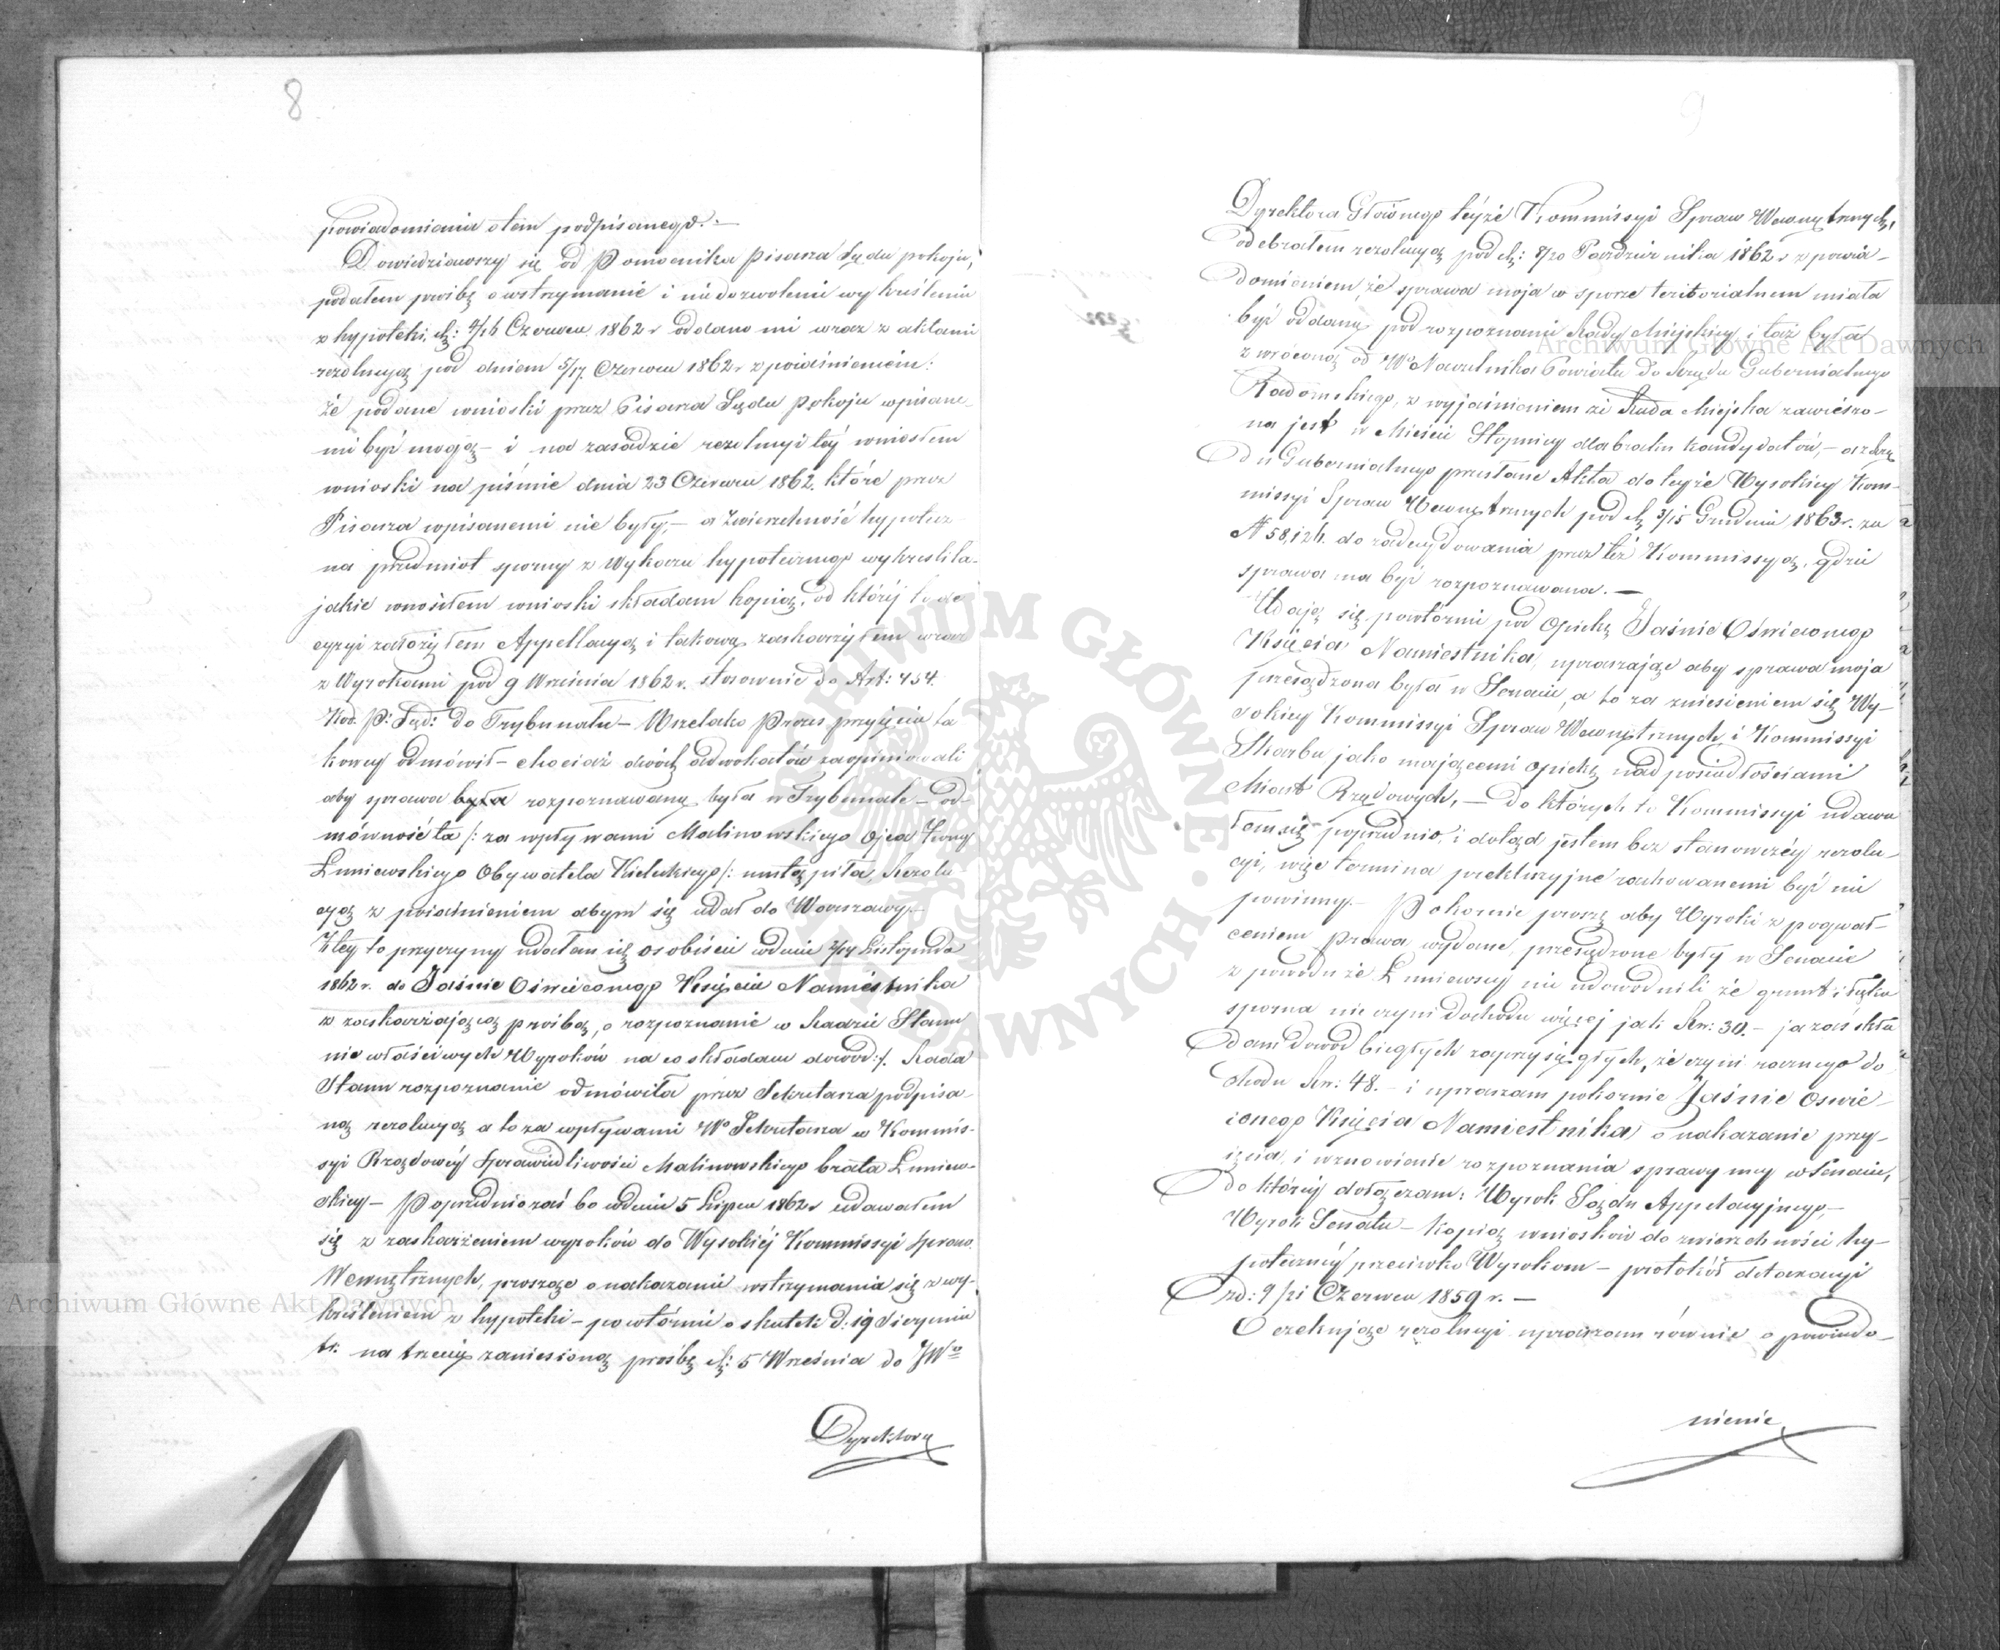 8
powiadomienia o tem podpisanego. —
Dowiedziawszy się od Pomocnika Pisarza Sądu pokoju,
podałem prośbę o wstrzymanie i niedozwolenie wykreślenia
z hypoteki, d: 4/16 Czerwca 1862 r oddano mi wraz z aktami
rezolucyą pod dniem 5/17 Czerwca 1862 r z poiaśnieniem:
że podane wnioski przez Pisarza Sądu Pokoju wpisane-
mi być mogą — i na zasadzie rezolucyi téj wniosłem
wnioski na piśmie dnia 23 Czerwca 1862. które przez
Pisarza wpisanemi nie były, — a Zwierzchność hypotecz-
na przedmiot sporny z Wykazu hypotecznego wykreśliła.
jakie wnosiłem wnioski składam kopią, od któréj to de
cyzyi założyłem Appellacyą i takową zaskarżyłem wraz
z Wyrokami pod 9 Września 1862 r. stosownie do Art: 454.
Kod. P: Sąd: do Trybunału — Wszelako Prezes przyjęcia ta
kowéj odmówił — chociaż dwóch adwokatów zaopiniowali
aby sprawa była rozpoznawaną była w Trybunale — od-
mówność ta /: za wpływami Malinowskiego Ojca Żony
Łuniewskiego Obywatela Kieleckiego :/ nastąpiła, Rezolu-
cyą z poiaśnieniem abym się udał do Warszawy. —
Z téj to przyczyny udałem się osobiście w dniu 2/14 Listopada
1862 r. do Jaśnie Oświeconego Xięcia Namiestnika
z zaskarżającą prośbą, o rozpoznanie w Radzie Stanu
niewłaściwych Wyroków na co składam dowód :/. Rada
Stanu rozpoznanie odmówiła przez Sekretarza podpisa-
ną rezolucyą a to za wpływami Wo Sekretarza w Kommis-
syi Rządowéj Sprawiedliwości Malinowskiego brata Łuniew-
skiéj — Poprzednio zaś bo w dniu 5 Lipca 1862 r udawałem
się z zaskarżeniem wyroków do Wysokiéj Kommissyi Spraw
Wewnętrznych, proszące o nakazanie wstrzymania się z wy-
kreśleniem z hypoteki — powtórnie o skutek d: 19 Sierpnia
tr. na trzecią zaniesioną prośbę d: 5 Września do JWo
Dyrektora
9
Dyrektora Głównego téjże Kommissyi Spraw Wewnętrznych,
odebrałem rezolucyą pod d: 8/20 Października 1862 r z powia-
domieniem, że sprawa moja w sporze teritorialnem miała
być oddaną pod rozpoznanie Rady Miejskiéj i taż była
zwróconą od Wo Naczelnika Powiatu do Rządu Gubernialnego
Radomskiego, z wyjaśnieniem że Rada Miejska zawieszo-
na jest w Mieście Stopnicy dla braku kandydatów, — a z Rzą
du Gubernialnego przesłane Akta do téjże Wysokiéj Kom-
missyi Spraw Wewnętrznych pod d: 3/15 Grudnia 1863 r. za
N 58,124. do zadecydowania przez też Kommissyą, gdzie
sprawa ma być rozpoznawana. —
Udając się powtórnie pod Opiekę Jaśnie Oświeconego
Xięcia Namiestnika, upraszające aby sprawa moja
przesądzona była w Senacie, a to za zniesieniem się Wy-
sokiéj Kommissyi Spraw Wewnętrznych i Kommissyi
Skarbu jako mającemi opiekę nad posiadłościami
Miast Rządowych, — do których to Kommissyi udawa
łem się poprzednio, i dotąd jestem bez stanowczéj rezolu-
cyi, więc termina prekluzyjne zachowanemi być nie
powinny. — Pokornie proszę aby Wyroki z pogwał-
ceniem Prawa wydane, przesądzone były w Senacie
z powodu że Łuniewscy nie udowodnili że grunt i łąka
sporna nie czyni dochodu więcéj jak Rsr: 30. — ja zaś skła
dam dowód biegłych zaprzysięgłych, że czyni rocznego do
chodu Rsr: 48. — i upraszam pokornie Jaśnie Oświe-
conego Xięcia Namiestnika o nakazanie przy-
jęcia, i wznowienie rozpoznania sprawy méj w Senacie,
do któréj dołączam: Wyrok Sądu Appelacyjnego, —
Wyrok Senatu — kopią wniosków do zwierzchności hy-
potecznéj przeciwko Wyrokom — protokół detaxacyi
zd: 9/21 Czerwca 1859 r. —
Oczekujące rezolucyi upraszam równie o powiado-
mienie
Archiwum Główne Akt Dawnych
Archiwum Główne Akt Dawnych
ARCHIWUM GŁÓWNE AKT DAWNYCH